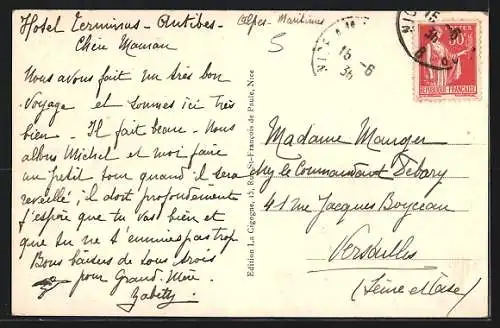 Hotel Terminus - Antibes - Alpes-Maritimes
Chère Maman
Nous avons fait un très bon
voyage et sommes ici très
bien - Il fait beau - Nous
allons Michel et moi faire
un petit tour quand il sera
réveillé, il dort profondément
J'espère que tu vas bien et
que tu ne t'ennuies pas trop
Bons baisers de tous trois
pour Grand-Mère.
5
NICE
15-6
35
NICE
15-6
35
50c
POSTES
REPUBLIQUE FRANÇAISE
Edition La Cigogne, 15, Rue St-François de Paule, Nice
Madame Mauger
chez le Commandant Debary
41 rue Jacques Boyceau
Versailles
(Seine et Oise)